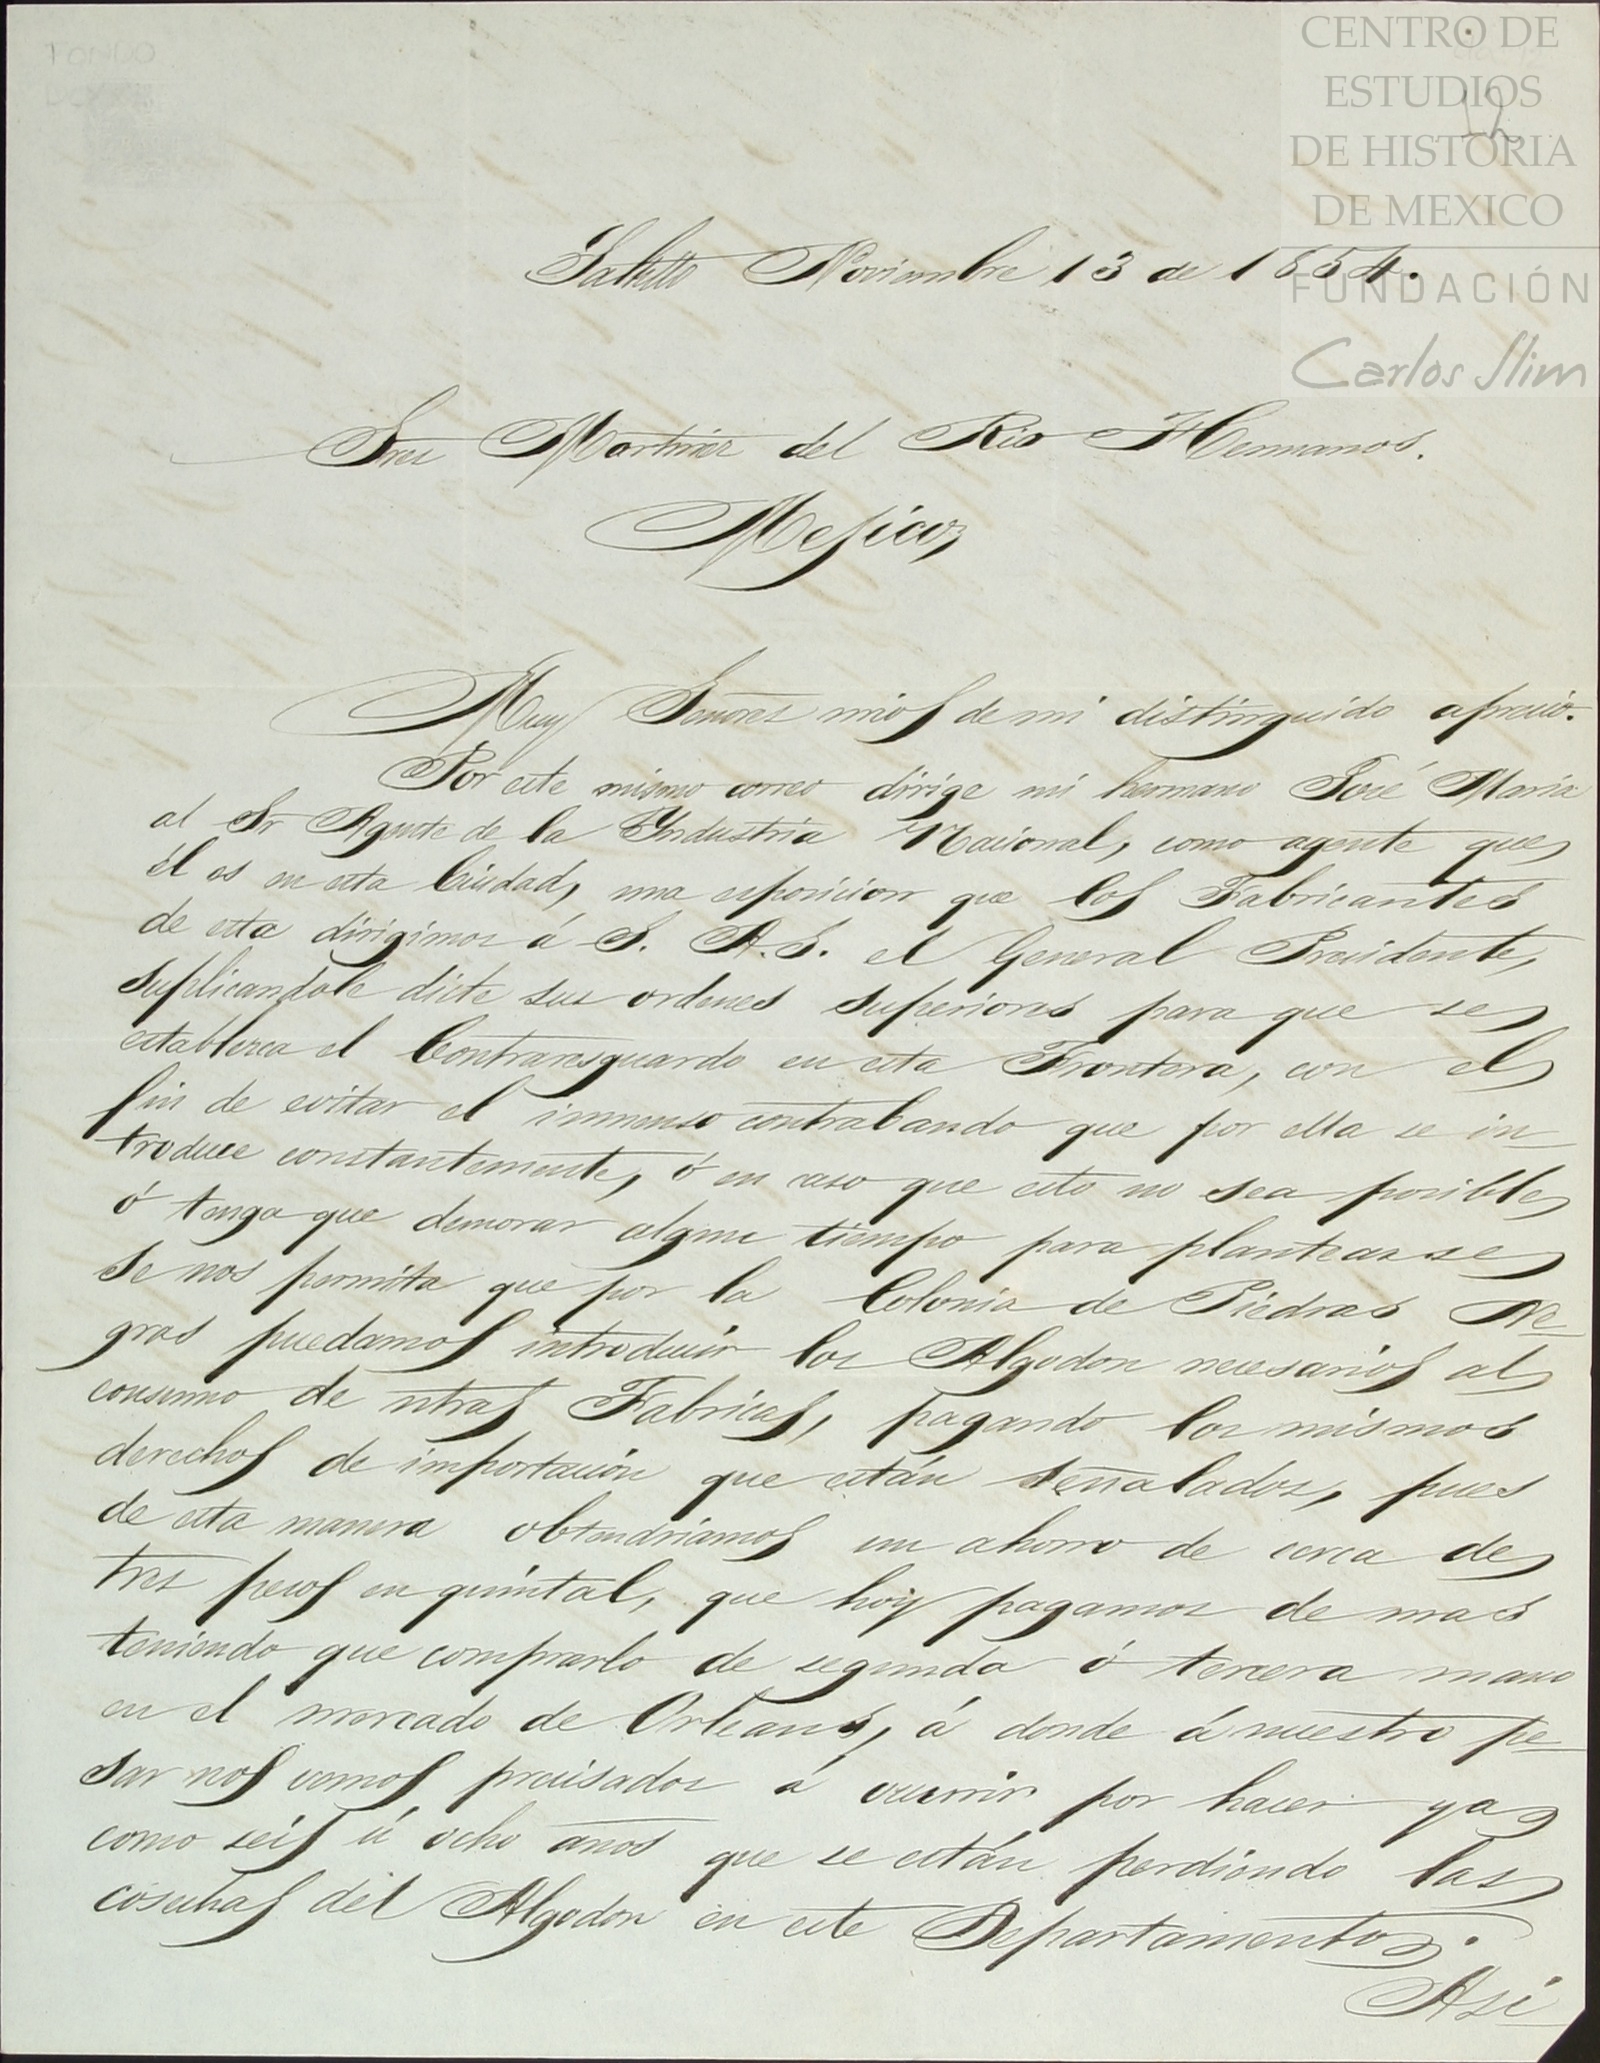 CENTRO DE
ESTUDIOS
DE HISTORIA
DE MEXICO
FUNDACIÓN
Carlos Slim
12
Saltillo Noviembre 13 de 1854.
Sres Martinez del Rio Hermanos.
Mejico,
Muy Señores mios de mi distinguido aprecio.
Por este mismo correo dirige mi hermano José Maria
al Sr Agente de la Yndustria Nacional, como agente que
él es en esta Ciudad, una esposicion que los Fabricantes
de esta dirigimos á S. A. S. el General Presidente,
suplicandole dicte sus ordenes superiores para que se
establesca el Contraresguardo en esta Frontera, con el
fin de evitar el inmenso contrabando que por ella se in-
troduce constantemente, ó en caso que esto no sea posible
ó tenga que demorar algun tiempo para plantearse
se nos permita que por la Colonia de Piedras Ne-
gras puedamos introducir los Algodon necesarios al
consumo de ntras Fabricas, pagando los mismos
derechos de importación que están señalados, pues
de esta manera obtendriamos un ahorro de cerca de
tres pesos en quintal, que hoy pagamos de mas
teniendo que comprarlo de segunda ó tercera mano
en el mercado de Orleans, á donde á nuestro pe-
sar nos vemos precisados á ocurrir por hacer ya
como seis ú ocho años que se están perdiendo las
cosechas del Algodon en este Departamento.
Asi